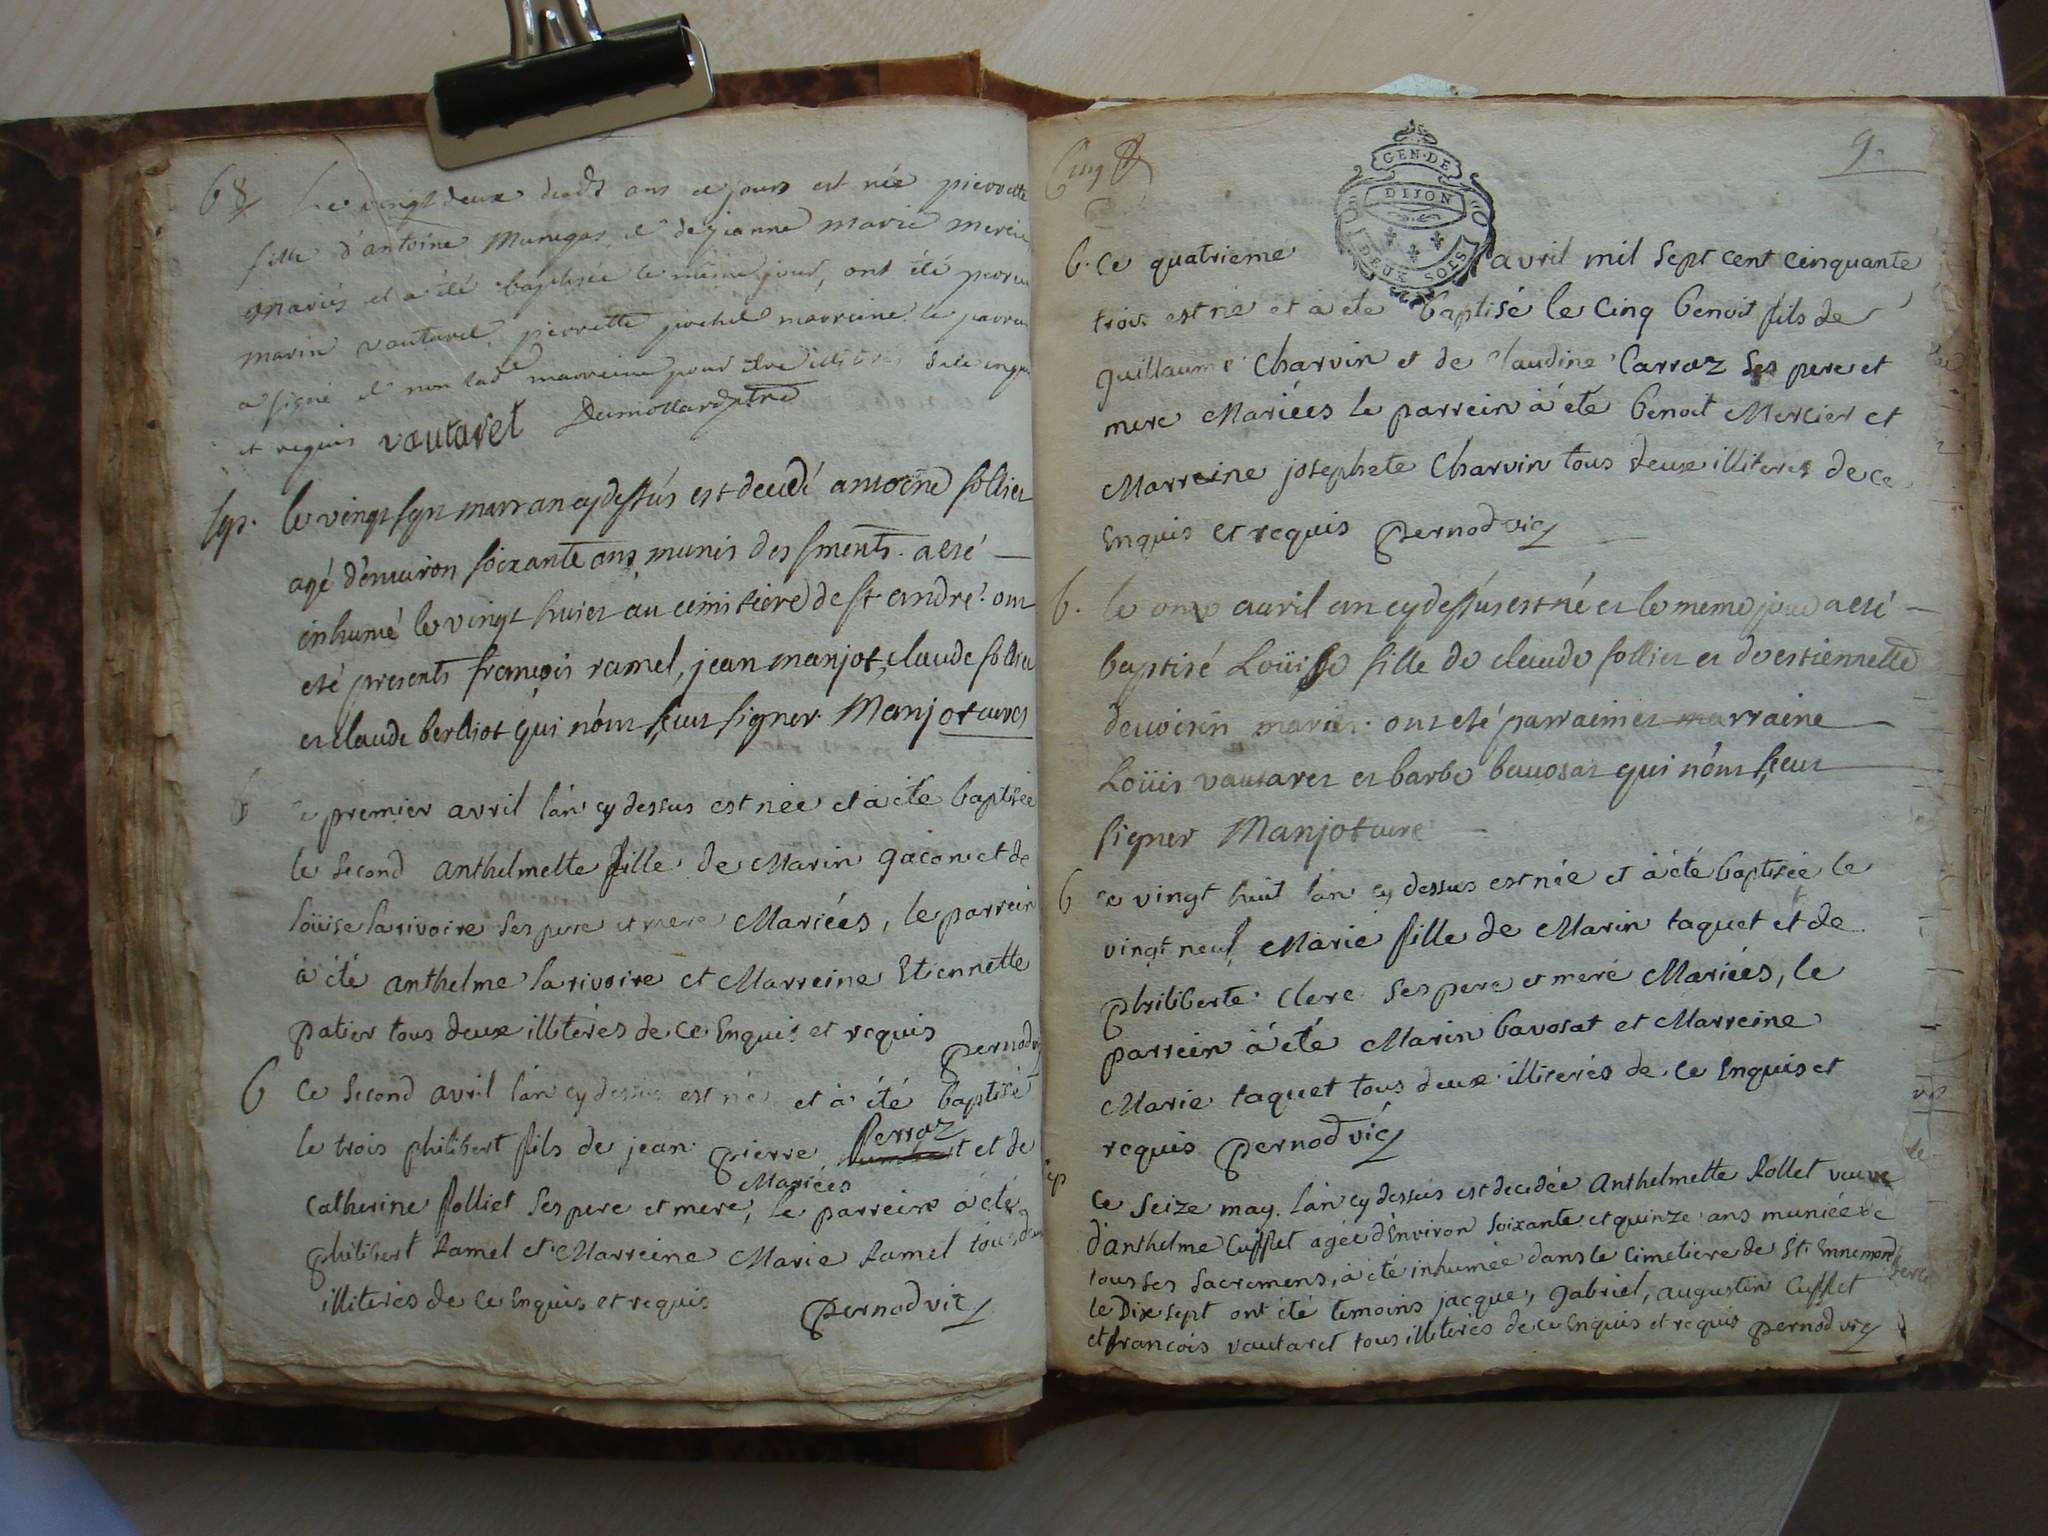 68 Le vingt deux dudt ans ce jours est née pierrette
fille d'antoine Munegas et de jeanne marie mercie
mariés et a été baptisée le même jour, ont été parrein
marin vautaret pierrette marreine le parrein
a signé et non lad marreine pour être illitérée de ce enqui
et requis vautaret Dumollard ptre
sep. le vingt sept mars an cydessus est decedé antoine follier
agé d'environ soixante ans munis des sments. a eté —
inhumé le vingt huiet au cimistiere de st andré. ont
eté presents francois ramel, jean manjot, claude follier
et claude berdiot qui n'ont sceut signer. Manjot curé
b ce premier avril l'an cy dessus est née et à été baptisée
le second anthelmette fille de Marin gacon et de
loüise larivoire ses pere et mere Mariées, le parrein
à été anthelme larivoire et Marreine Etiennette
patier tous deux illiterés de ce Enquis et requis pernod vic
b Ce Second avril l'an cy dessus est né et à été baptisé
le trois philibert fils de jean pierre ferroz et de
Mariées
Catherine folliet ses pere et mere, le parrein à été
philibert Ramel et Marreine Marie Ramel tous deu
illiterés de ce Enquis et requis pernod vic
Cinq
9.
GEN. DE
DIJON
DEUX SOLS
b. Ce quatrieme avril mil sept cent cinquante
trois est né et à été baptisé le Cinq benoit fils de
guillaume Charvin et de Claudine Carroz ses pere et
mere Mariées le parrein à été benoit Mercier et
Marreine josephete Charvin tous deux illiteres de ce
Enquis et requis pernod vic
b. le onze avril an cy dessus est né et le meme jour a eté —
baptisé Loüise fille de claude follier et de estiennette
devoisin mariés. ont eté parrain et marraine
Loüis vautaret et barbe bavosat qui n'ont sceut
signer Manjot curé
b ce vingt huit l'an cy dessus est née et à été baptisée le
vingt neuf Marie fille de Marin taquet et de
philiberte Clere ses pere et mere Mariées, le
parrein à été Marin bavosat et Marreine
Marie taquet tous deux illiterés de ce Enquis et
requis pernod vic
sep Ce Seize may l'an cy dessus est decedée Anthelmette Rollet veuve
d'anthelme Cufflet agée d'Environ soixante et quinze ans muniée de
tous ses Sacremens, à été inhumée dans le Cimetiere de St Ennemond
le Dix sept ont été temoins jacque, gabriel, augustin Cufflet
et francois vautaret tous illiteres de ce Enquis et requis pernod vic